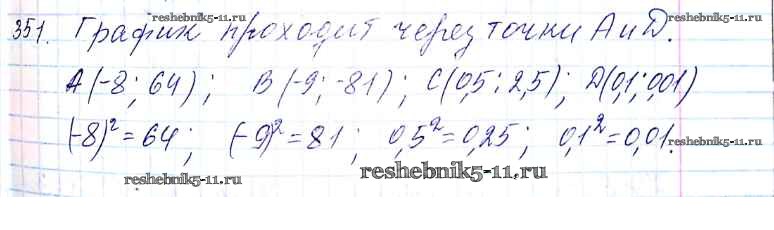 reshebnik5-11.ru
351. График проходит через точки А и D.
reshebnik5-11.ru
A(-8; 64); B(-9; -81); C(0,5; 2,5); D(0,1; 0,01)
(-8)² = 64; (-9)² = 81; 0,5² = 0,25; 0,1² = 0,01.
reshebnik5-11.ru
reshebnik5-11.ru
reshebnik5-11.ru